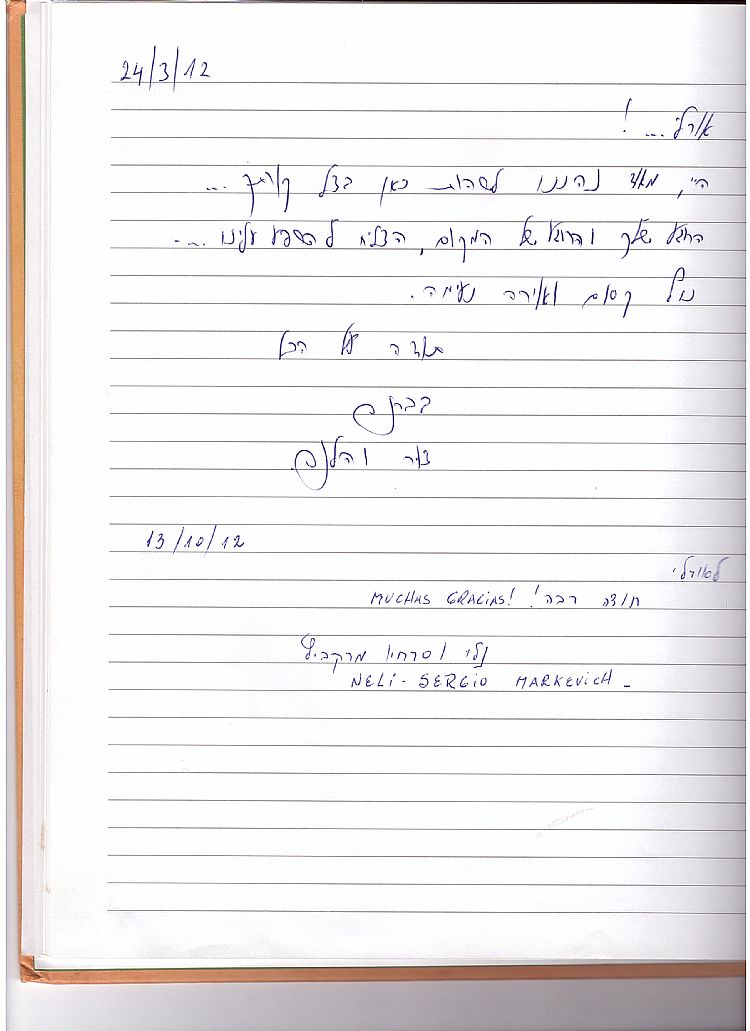 24/3/12
אורלי... !
היי, מאוד נהננו לשהות כאן בצל קורתך ...
הרוגע שלך והרוגע של המקום, הצליח להשפיע עלינו ...
נוף קסום ואוירה נעימה.
תודה על הכל
בברכה
צור
13/10/12
לאורלי
תודה רבה! MUCHAS GRACIAS!
נלי וסרחיו מרקביץ'
NELI - SERGIO MARKEVICH -